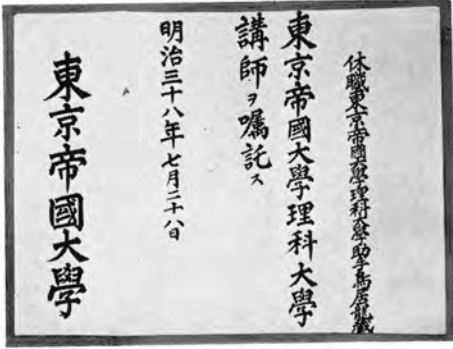 休職東京帝國大學理科大學助手鳥居龍藏
東京帝國大學理科大學
講師ヲ囑託ス
明治三十八年七月二十八日
東京帝國大學